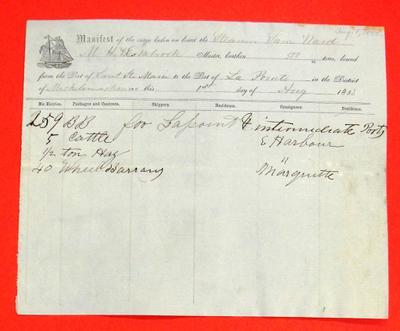 Manifest of the cargo laden on board the Steamer Sam Ward
M. H. Master, burthen tons, bound
from the Port of Sault Ste Marie to the Port of La Pointe in the District
of Michilimackinac this 1st day of Aug 185
No. Entries. Packages and Contents. Shippers. Residence. Consignees. Residence.
259 BB for Lapoint & intermediate Ports
5 Cattle E Harbour
1/2 ton Hay "
40 Wheel Barrows Marquette